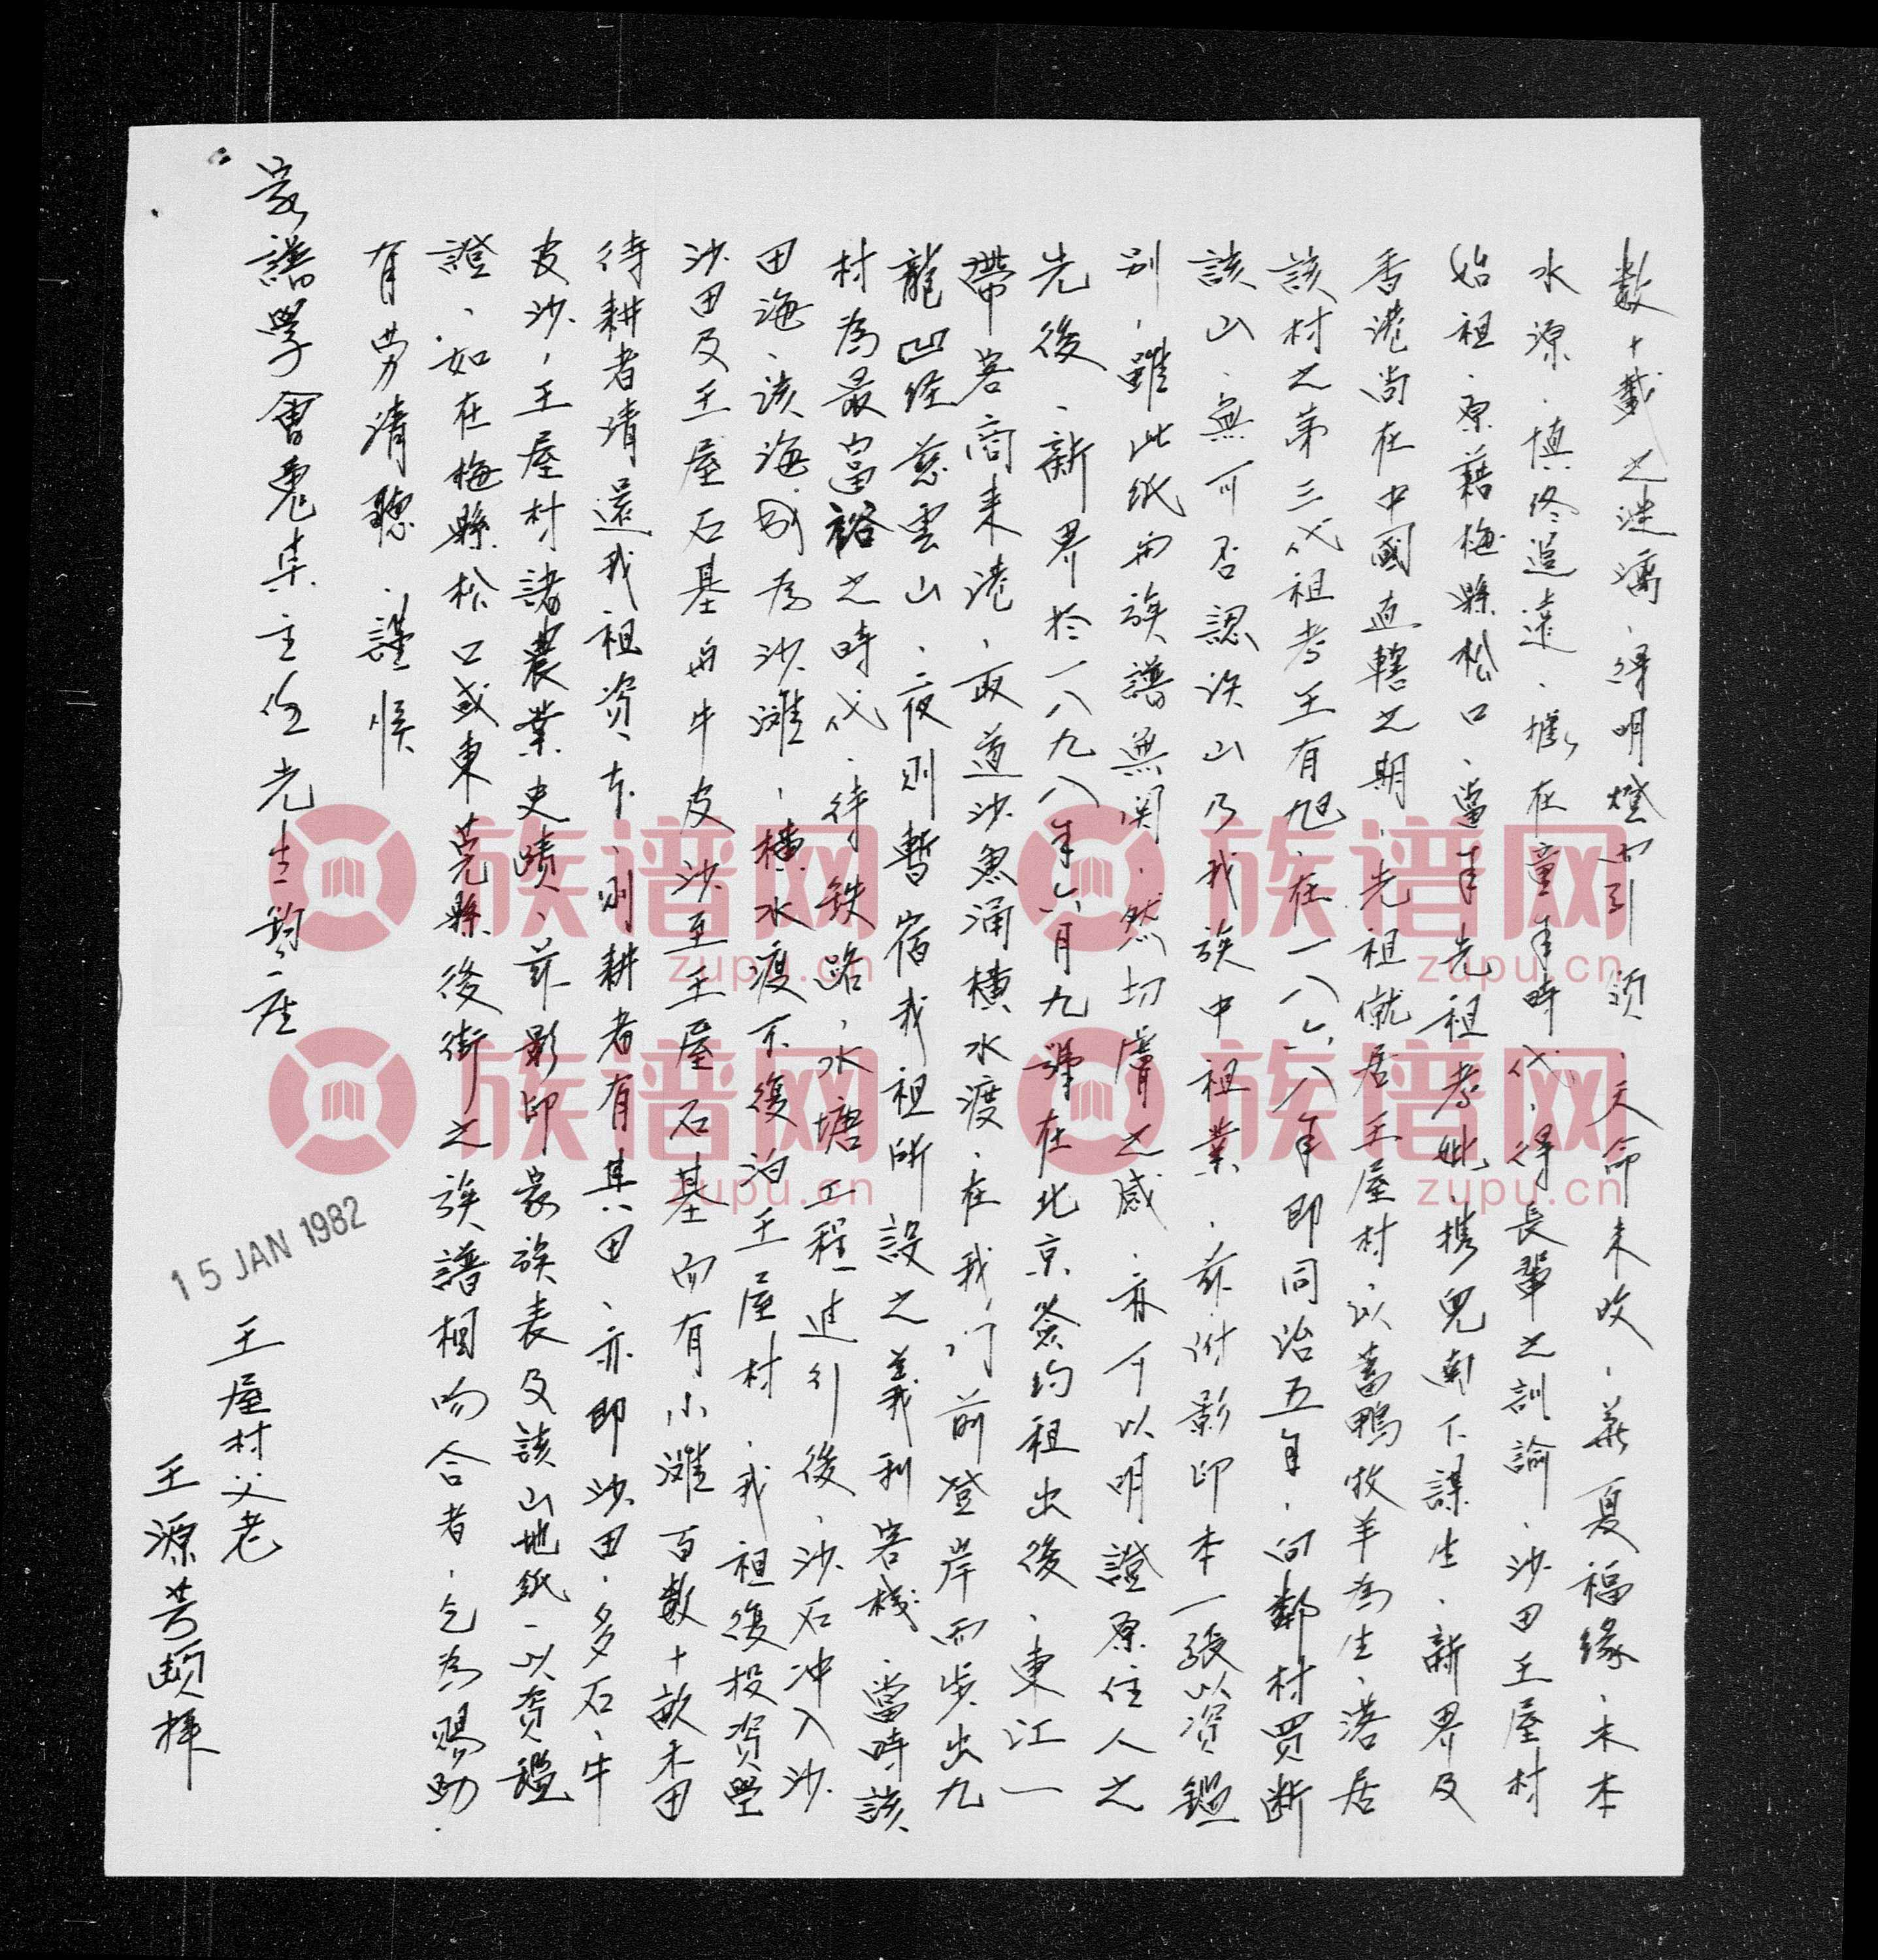 數十載之迷濛、得明燈而引領、天命未收、華夏福緣、木本
水源、慎終追遠、據在童年時代、得長輩之訓諭、沙田王屋村
始祖、原籍梅縣松口、當年先祖考妣、攜兒南下謀生、新界及
香港尚在中國直轄之期、先祖僦居王屋村、以蓄鴨牧羊為生、落居
該村之第三代祖考王有旭、在一八六八年即同治五年、向鄰村買断
該山、無可否認該山乃我族中祖業、茲附影印本一張以資鑑
別、雖此紙與族譜無関、然切膚之感、亦可以明證原住人之
先後、新界於一八九八年六月九號在北京簽約租出後、東江一
帶客商来港、取道沙魚涌橫水渡、在我门前登岸而步出九
龍凹经慈雲山、夜则暫宿我祖所設之義利客棧、當時該
村為最富裕之時代、待铁路、水塘工程進行後、沙石冲入沙
田海、该海刼為沙灘、橫水渡不復泊王屋村、我祖復投資墾
沙田及王屋石基與牛皮沙至王屋石基而有小灘百數十畝禾田
待耕者清還我祖资本、则耕者有其田、亦即沙田、多石、牛
皮沙、王屋村諸農業史蹟、茲影印家族表及該山地纸一以資鑑
證、如在梅縣松口或東莞縣後街之族譜相吻合者、乞為賜助、
有勞清聽、謹候
家譜學會蒐集主任先生鈞座
15 JAN 1982
王屋村父老
王源芳頓拜
族谱网
zupu.cn
族谱网
zupu.cn
族谱网
zupu.cn
族谱网
zupu.cn